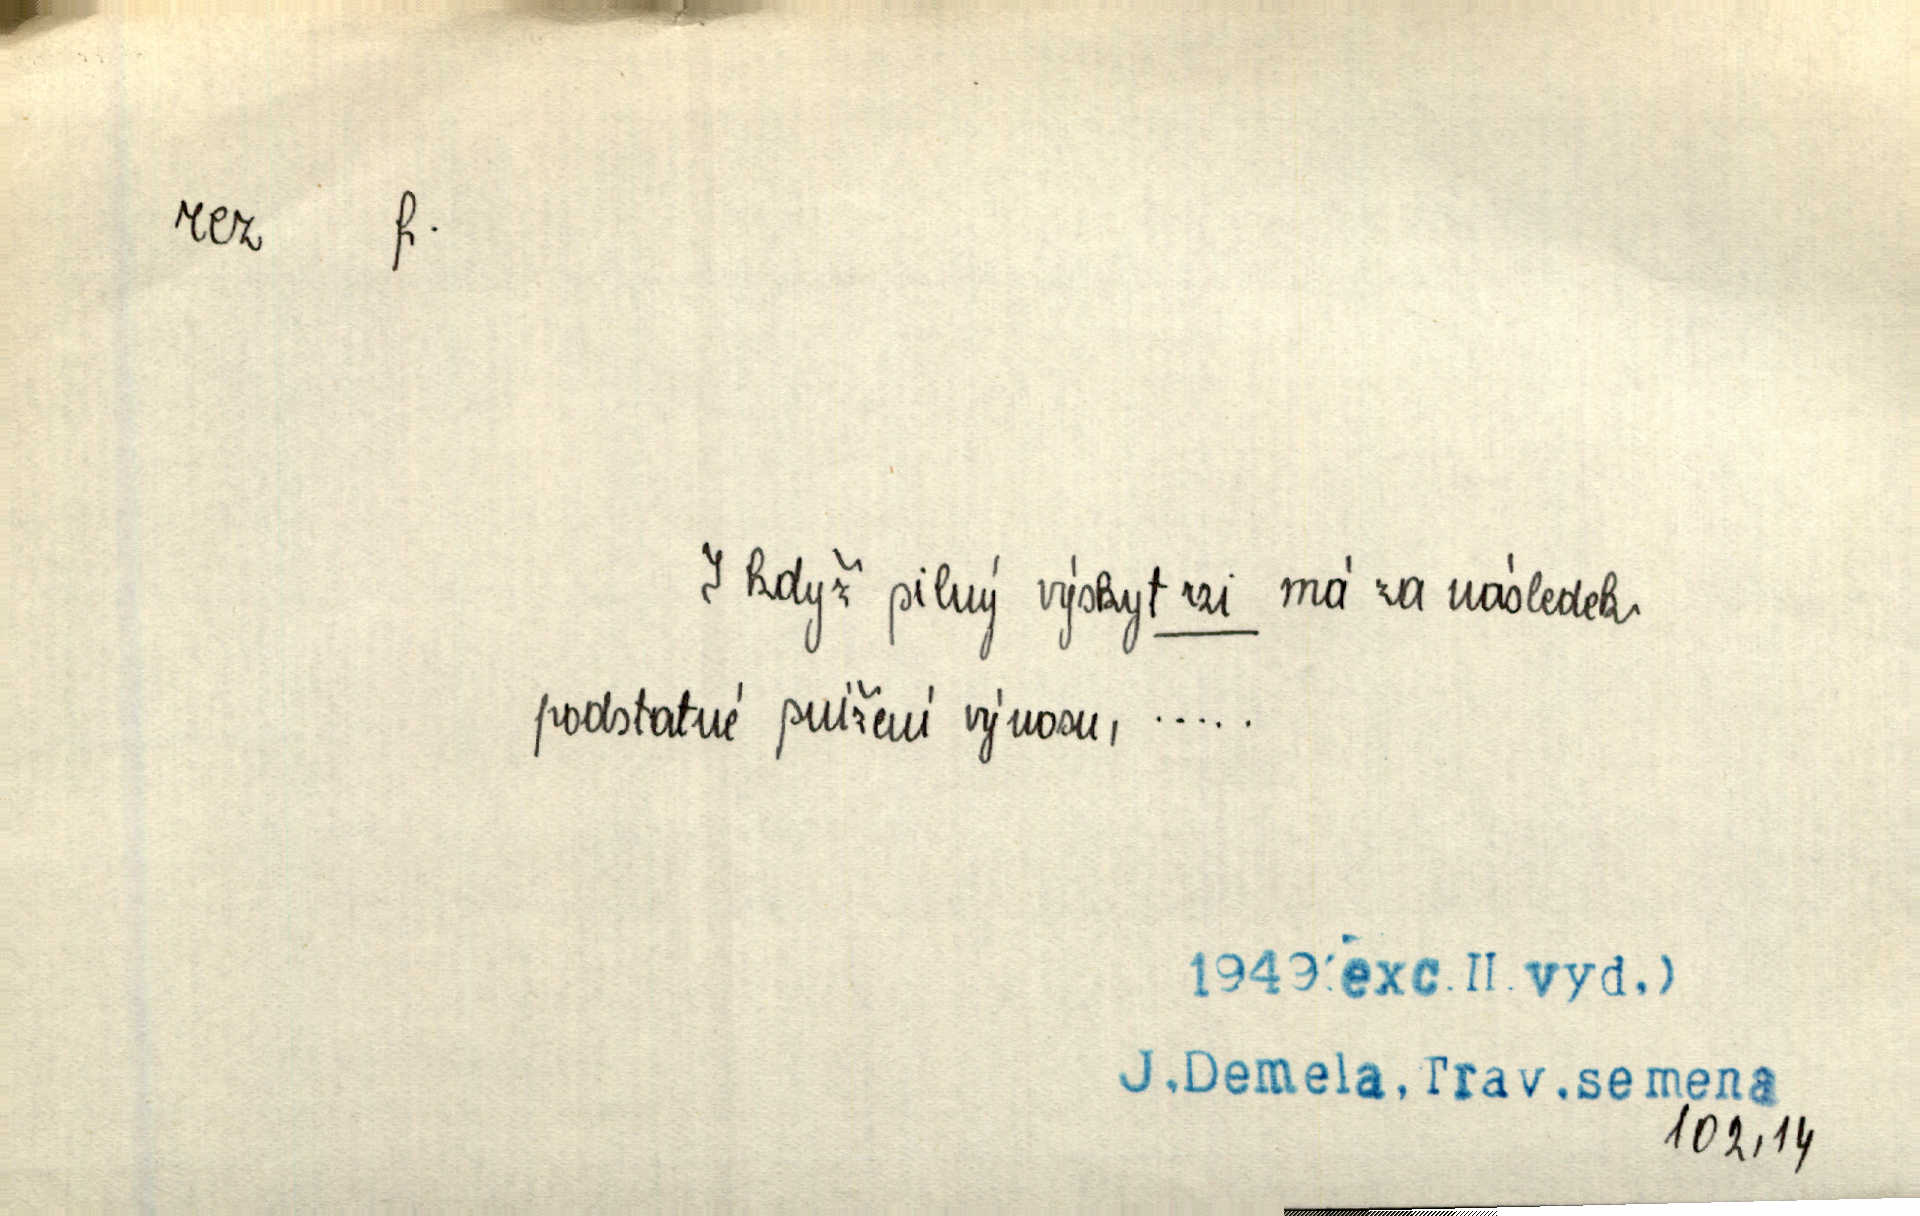 rez f.
I když pilný výskyt rzi má za následek
podstatné snížení výnosu, .....
1949(exc. II. vyd.)
J.Demela,Trav.semena
102,14